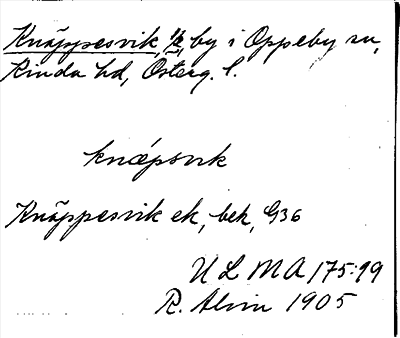 Knäppesvik, 1/2, by i Oppeby sn,
Kinda hd, Österg. l.
knæpsvik
Knäppesvik ek, bek, G36
ULMA 175:19
R. Alvin 1905